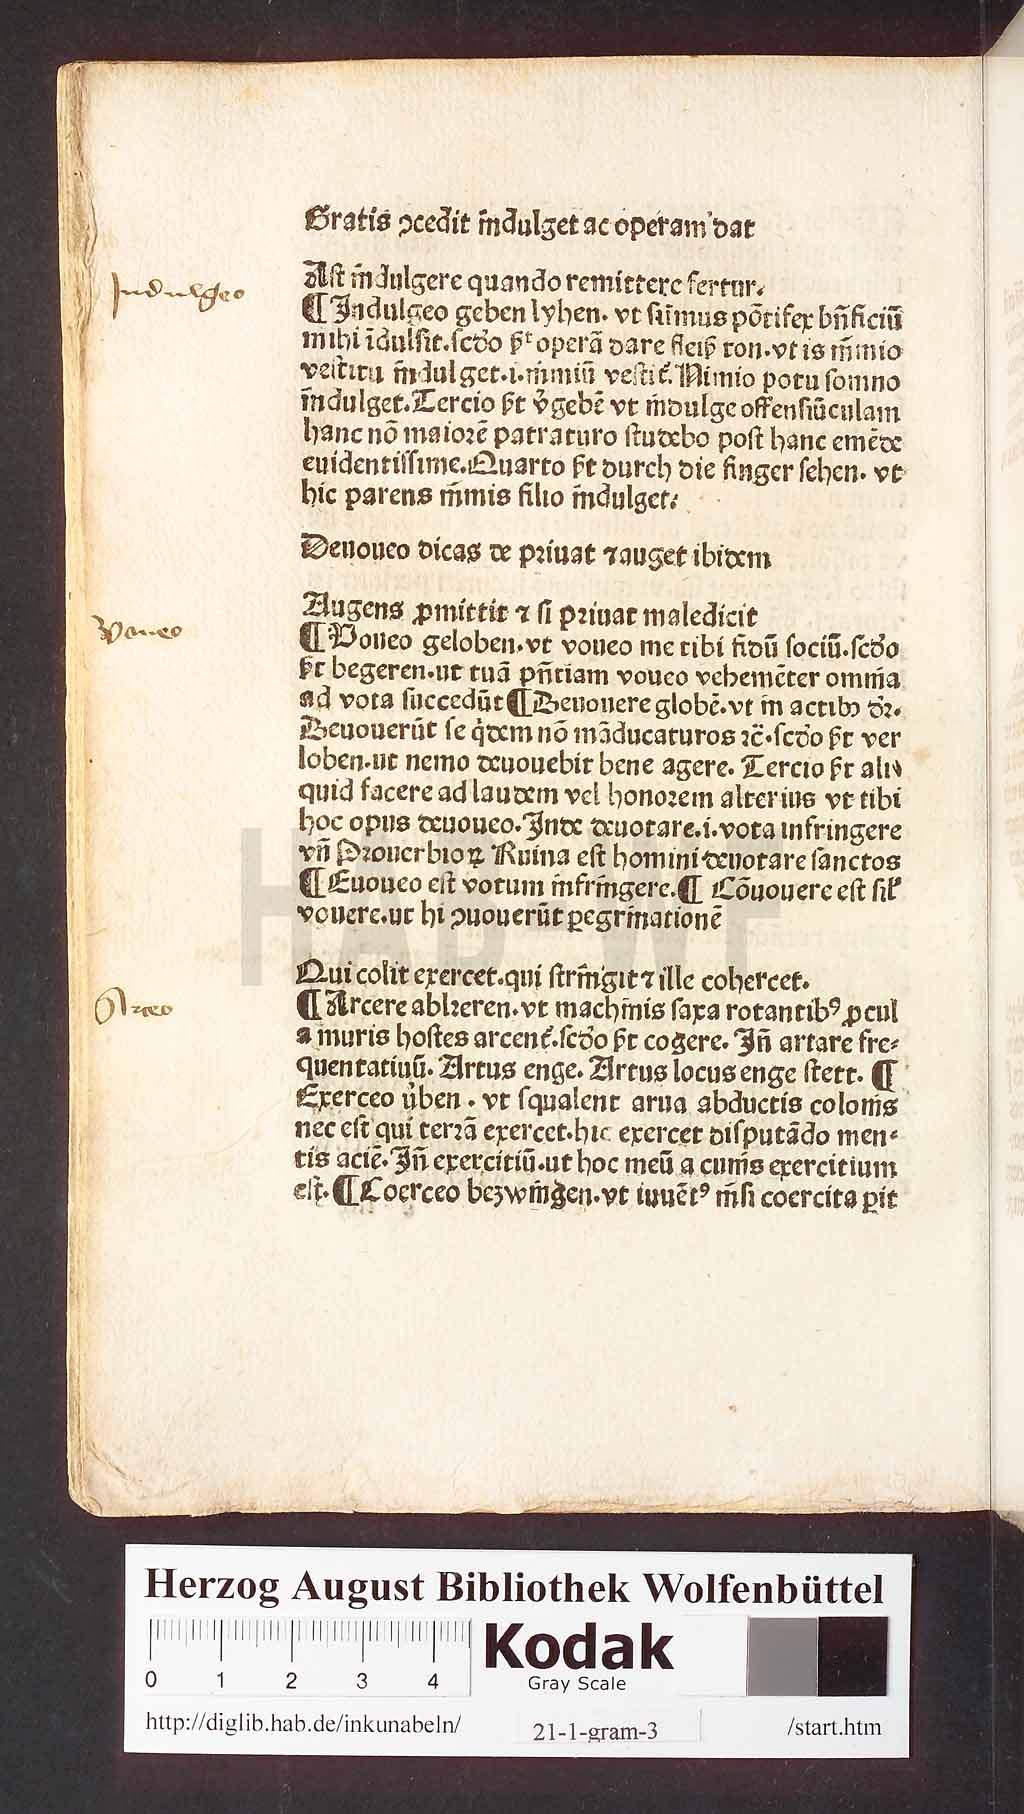 Gratis ↄcedit indulget ac operam dat
Ast indulgere quando remittere fertur.
Indulgeo
¶ Indulgeo geben lyhen. vt sum̄mus pōtifex bn̄ficiū
mihi īdulsit. scd̓o p̄t operā dare fleiß ton. vt is nimio
vestitu indulget .i. nimiū vestit᷑. Nimio potu somno
indulget. Tercio p̄t v̓gebē vt indulge offensiūculam
hanc nō maiorē patraturo studebo post hanc emēde
euidentissime. Quarto p̄t durch die finger sehen. vt
hic parens nimis filio indulget.
Deuoueo dicas de priuat ⁊ auget ibidem
Augens ꝓmittit ⁊ si priuat maledicit
Voueo
¶ Voueo geloben. vt voueo me tibi fidū sociū. scd̓o
p̄t begeren. ut tuā pn̄tiam voueo vehemēter omnia
ad vota succedūt ¶ Deuouere globē. vt in actibꝫ dr̄.
Deuouerūt se q̇dem nō māducaturos ⁊c̄. scd̓o p̄t ver
loben. ut nemo deuouebit bene agere. Tercio p̄t ali⸗
quid facere ad laudem vel honorem alterius vt tibi
hoc opus deuoueo. Inde deuotare .i. vota infringere
vn̄ Prouerbioꝝ Ruina est homini deuotare sanctos
¶ Euoueo est votum infringere. ¶ Cōuouere est sil̄
vouere. ut hi ↄuouerūt ꝑegrinationē
Qui colit exercet. qui stringit ⁊ ille cohercet.
Arceo
¶ Arcere abkeren. vt machinis saxa rotantibꝰ ꝓcul
a muris hostes arcent᷑. scd̓o p̄t cogere. In̄ artare fre⸗
quentatiuū. Artus enge. Artus locus enge stett. ¶
Exerceo u̇ben. vt squalent arua abductis colonis
nec est qui terrā exercet. hic exercet disputādo men⸗
tis aciē. In̄ exercitiū. ut hoc meū a cunis exercitium
est. ¶ Coerceo bezwingen. vt iuuētꝰ nisi coercita ꝑit
HAB-WF
Herzog August Bibliothek Wolfenbüttel
0 1 2 3 4
Kodak
Gray Scale
http://diglib.hab.de/inkunabeln/ 21-1-gram-3 /start.htm